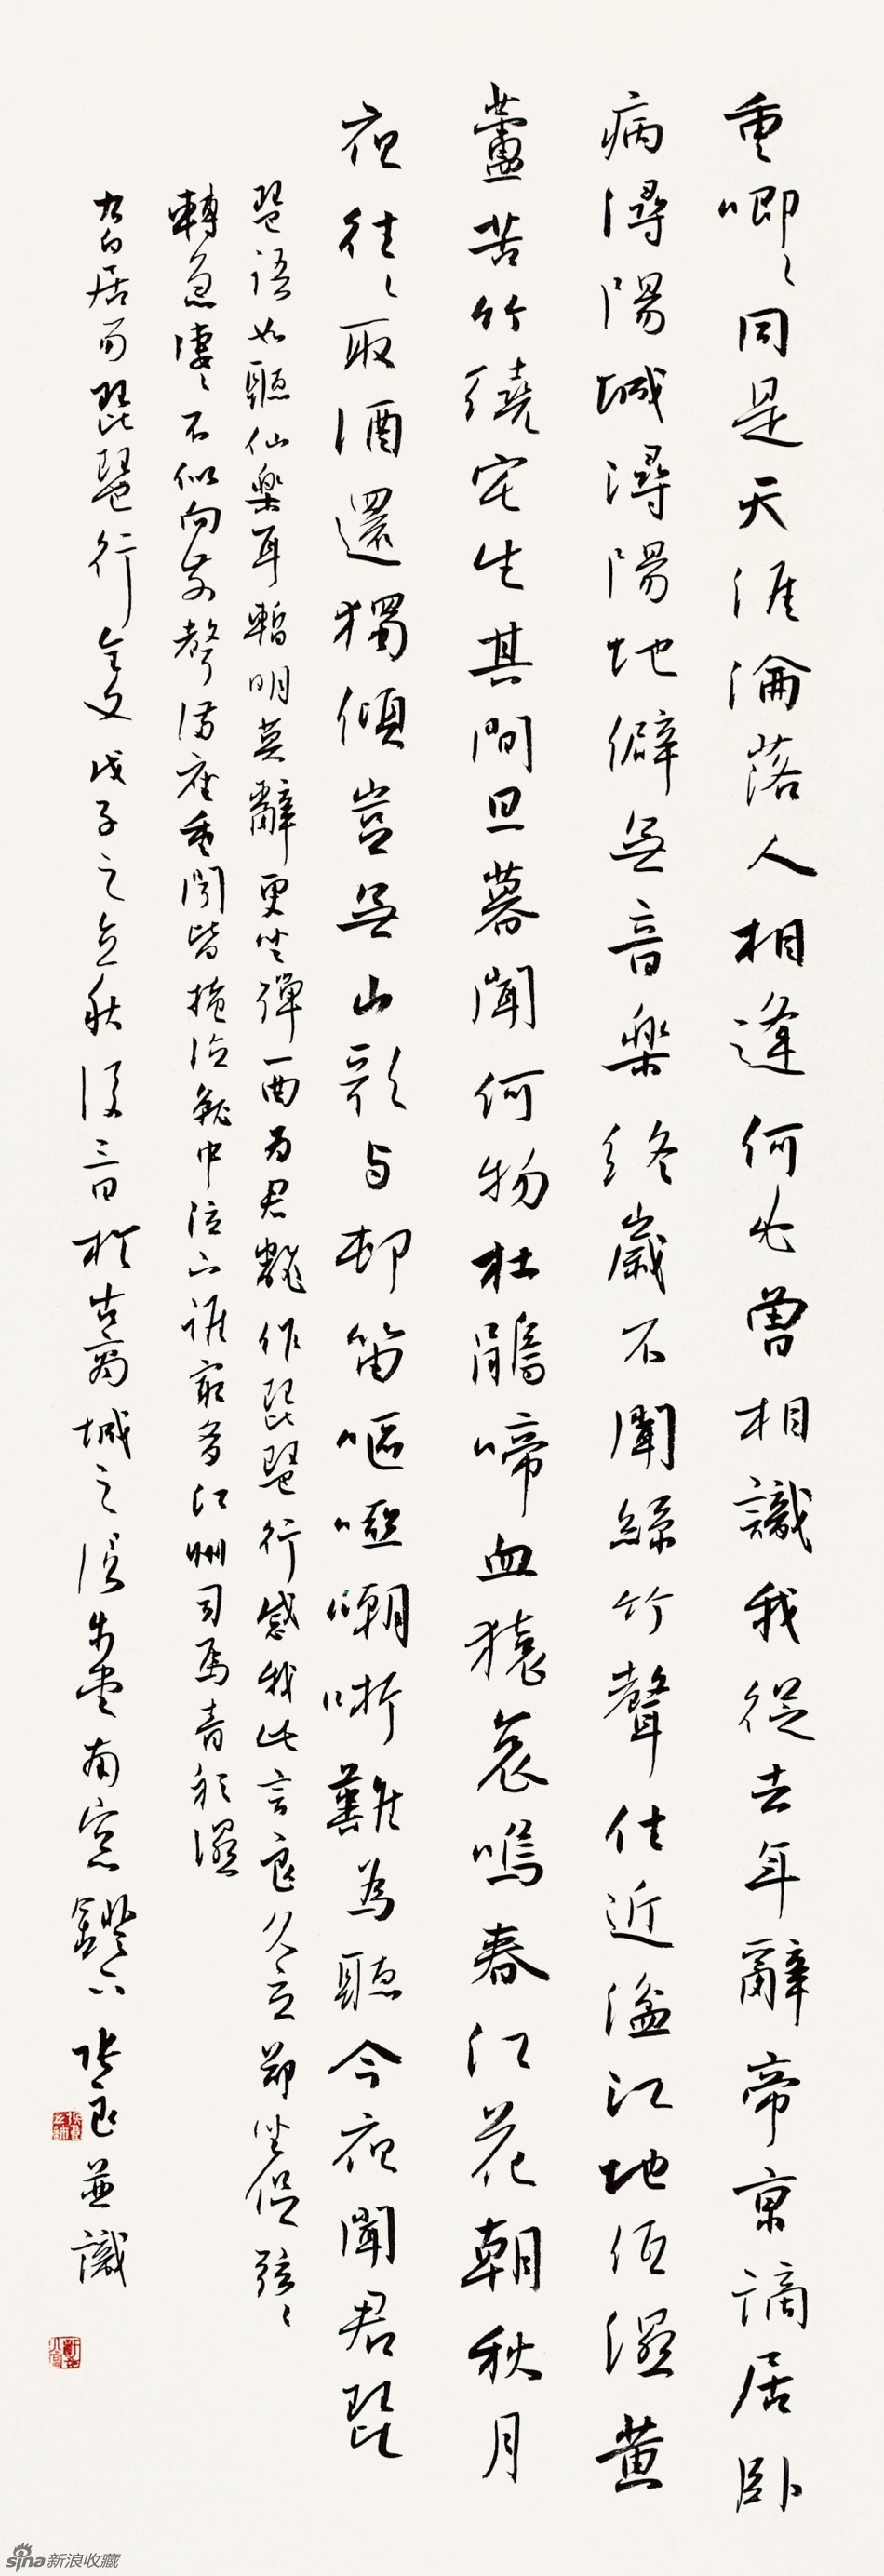 重唧〻同是天涯淪落人相逢何必曾相識我從去年辭帝京謫居卧
病潯陽城潯陽地僻無音樂終歲不聞絲竹聲住近湓江地低濕黄
蘆苦竹繞宅生其間旦暮聞何物杜鵑啼血猿哀鳴春江花朝秋月
夜往〻取酒還獨傾豈無山歌与邨笛嘔啞嘲哳難為聽今夜聞君琵
琶語如聽仙樂耳暫明莫辭更坐彈一曲为君翻作琵琶行感我此言良久立卻坐促弦〻
轉急凄〻不似向前聲满座重聞皆掩泣就中泣下誰最多江州司馬青衫濕
右白居易琵琶行全文戊子之立秋後三日於古蜀城之堂南窗鐙下張良並識
sina新浪收藏